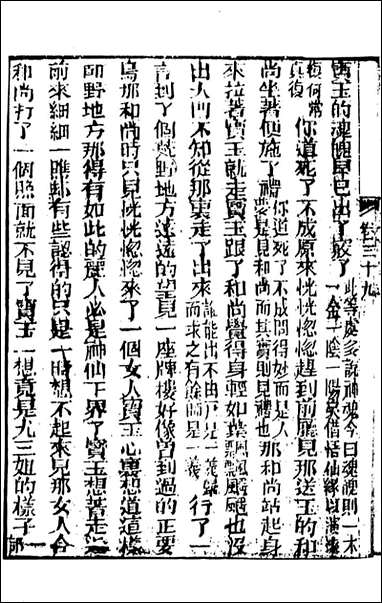 寶玉的魂魄早已出了竅了此等處多說神魂今曰魂魄則一木
一金一陰一陽矣借恬仙緣以演
復何常
真復你道死了不成原來恍恍惚惚趕到前廳見那送玉的和
尚坐著便施了禮你道死了不成問得妙而是人
衆是見和尚而其實則見禮也那和尚站起身
來拉著寶玉就走寶玉跟了和尚覺得身輕如葉飄飄颻颻也沒
出大門不知從那裏走了出來誰能出不由戶是一義歸
而求之有餘師是一義行了一
言到了個荒野地方遠遠的望見一座牌樓好像曾到過的正要
問那和尚時只見恍恍惚惚來了一個女人寶玉心裏想道這樣
曠野地方那得有如此的麗人必是神仙下界了寶玉想著走近
前來細細一瞧却有些認得的只是一時想不起來見那女人合
和尚打了一個照面就不見了寶玉一想竟是尤三姐的樣子
卷三十九